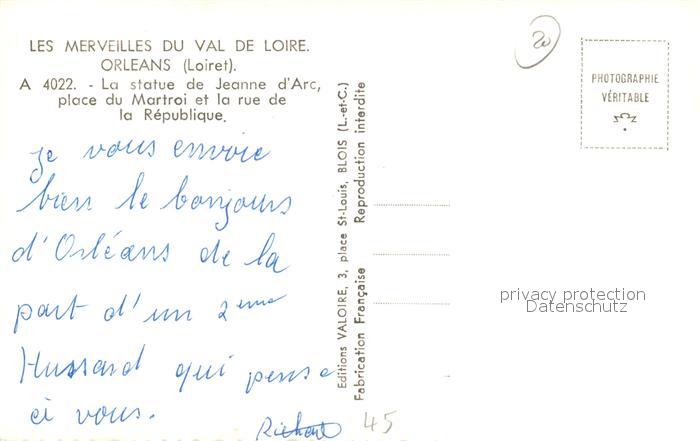 LES MERVEILLES DU VAL DE LOIRE.
ORLEANS (Loiret).
A 4022. - La statue de Jeanne d'Arc,
place du Martroi et la rue de
la République.
je vous envoie
bien le bonjours
d'Orléans de la
part d'un 2eme
Hussard qui pense
ci vous.
Richard
45
Editions VALOIRE, 3, place St-Louis, BLOIS (L.-et-C.)
Fabrication Française
Reproduction interdite
20
PHOTOGRAPHIE
VÉRITABLE
privacy protection
Datenschutz